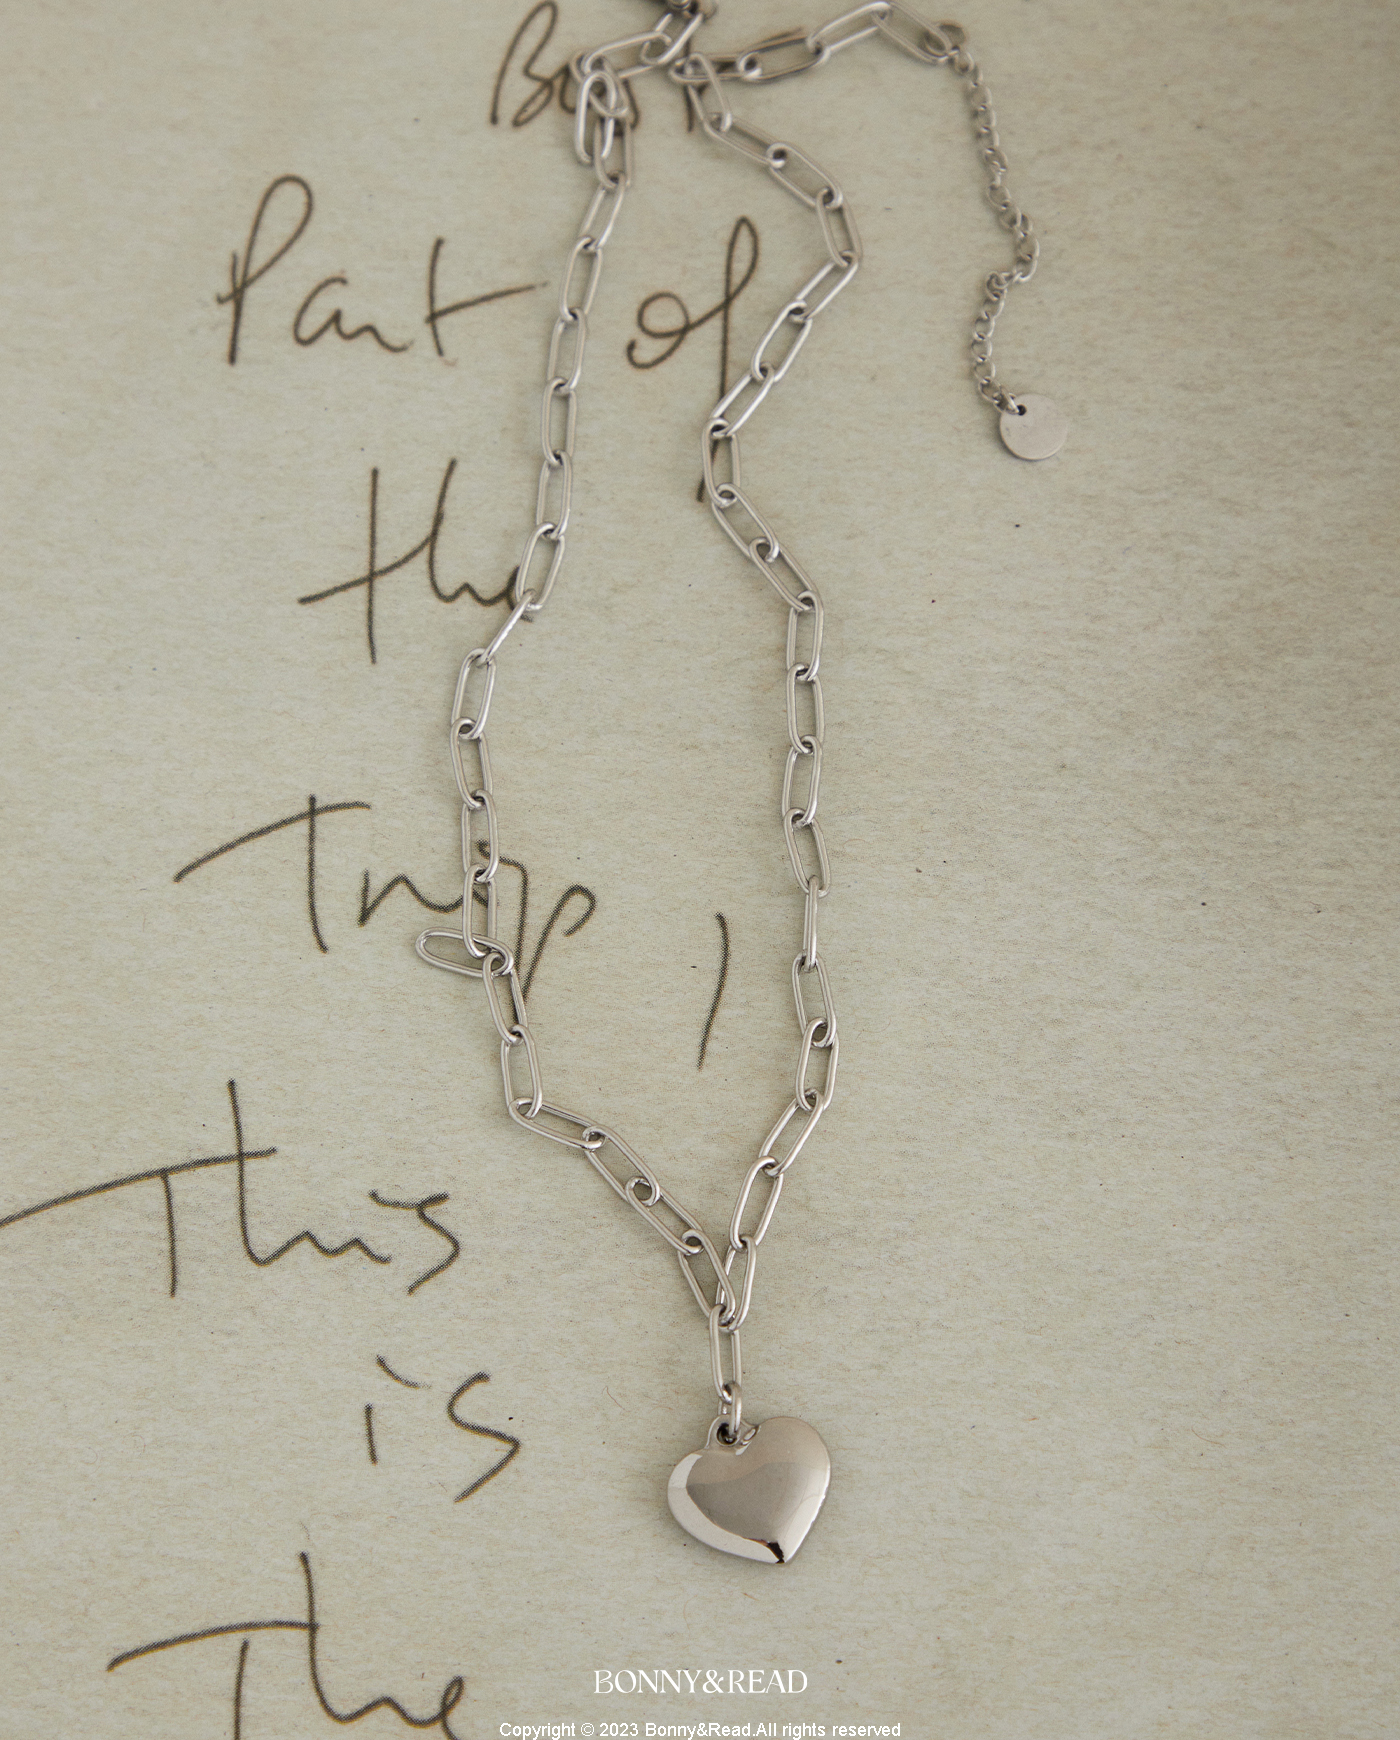 Part of
the
Trip,
This
is
The
BONNY&READ
Copyright © 2023 Bonny&Read.All rights reserved